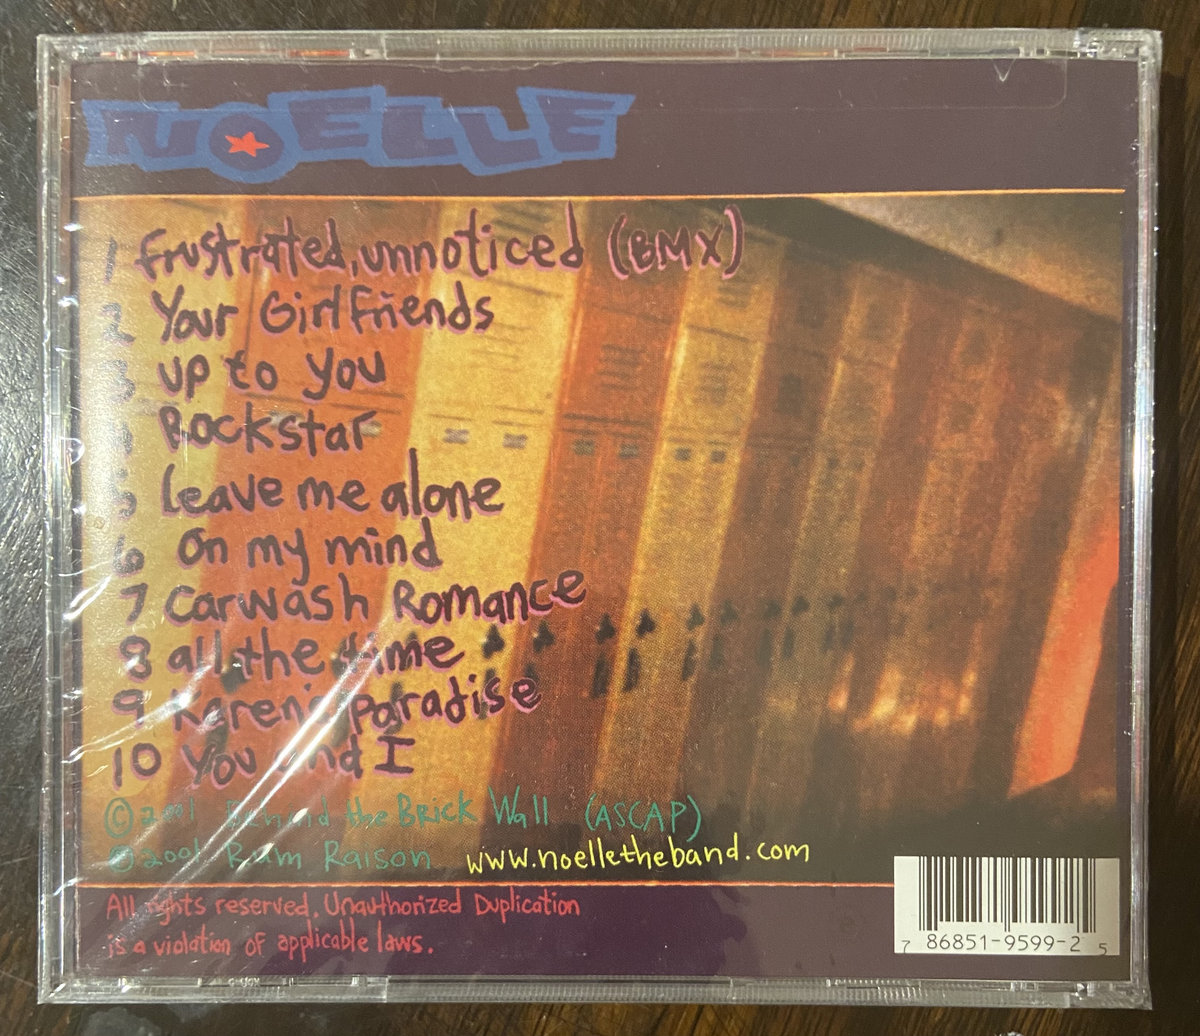 NOELLE
1 frustrated, unnoticed (BMX)
2 Your Girlfriends
3 up to you
Rockstar
5 Leave me alone
6 On my mind
7 Carwash Romance
8 all the time
9 Karen's Paradise
10 You and I
© 2001 Behind the Brick Wall (ASCAP)
℗ 2001 Rum Raison www.noelletheband.com
All rights reserved. Unauthorized Duplication
is a violation of applicable laws.
7 86851-9599-2 5